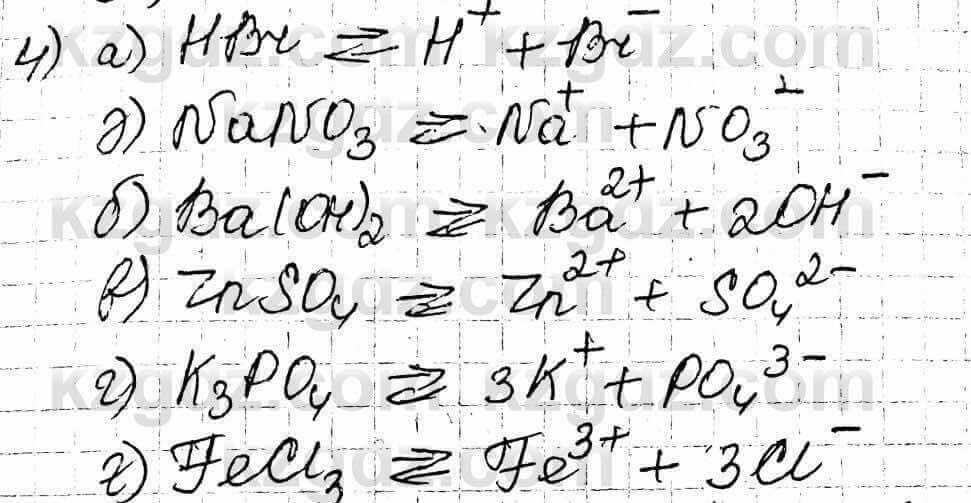 4) а) HBr ⇄ H⁺ + Br⁻
д) NaNO₃ ⇄ Na⁺ + NO₃⁻
б) Ba(OH)₂ ⇄ Ba²⁺ + 2OH⁻
в) ZnSO₄ ⇄ Zn²⁺ + SO₄²⁻
г) K₃PO₄ ⇄ 3K⁺ + PO₄³⁻
г) FeCl₃ ⇄ Fe³⁺ + 3Cl⁻